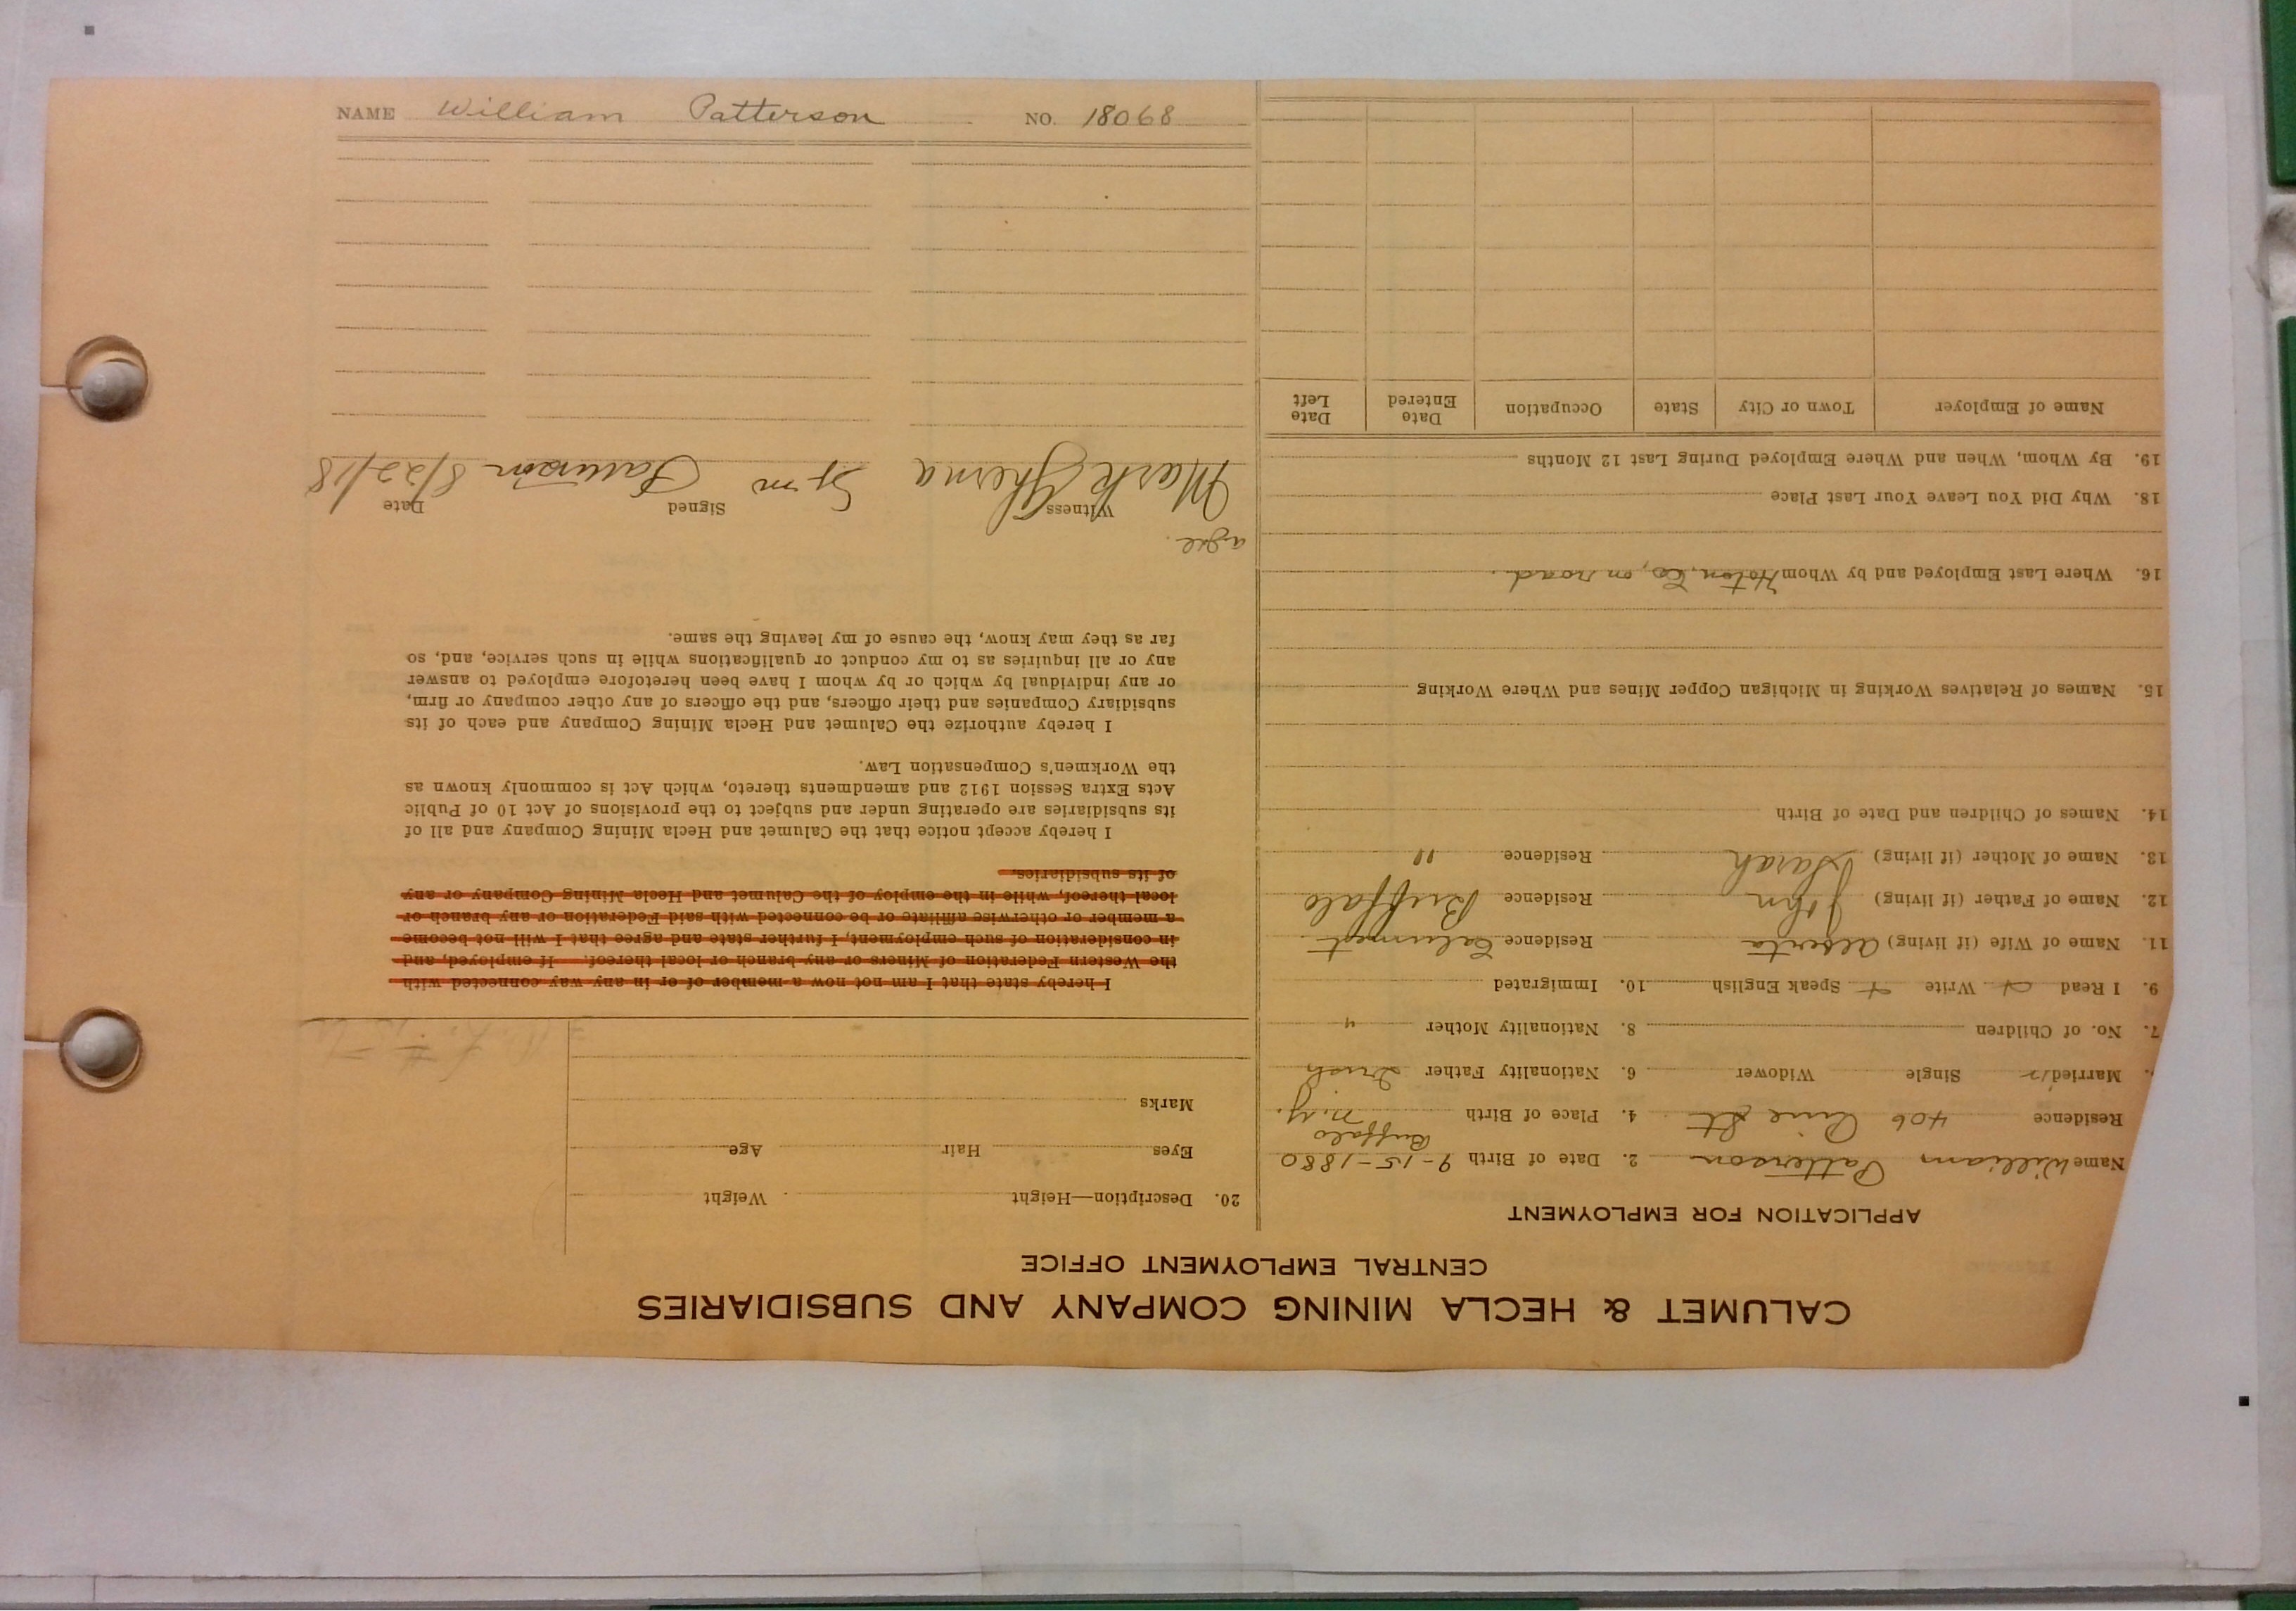 NAME William Patterson NO. 18068
CALUMET & HECLA MINING COMPANY AND SUBSIDIARIES
CENTRAL EMPLOYMENT OFFICE
APPLICATION FOR EMPLOYMENT
Name William Patterson 2. Date of Birth 9-15-1880
Residence 406 Pine St 4. Place of Birth Buffalo N.Y.
Married Single Widower 6. Nationality Father Irish
7. No. of Children 8. Nationality Mother "
9. I Read Write Speak English 10. Immigrated
11. Name of Wife (if living) Alberta Residence Calumet
12. Name of Father (if living) John Residence Buffalo
13. Name of Mother (if living) Sarah Residence "
14. Names of Children and Date of Birth
15. Names of Relatives Working in Michigan Copper Mines and Where Working
16. Where Last Employed and by Whom Hoton, Co, on road.
18. Why Did You Leave Your Last Place
19. By Whom, When and Where Employed During Last 12 Months
Name of Employer Town or City State Occupation Date Entered Date Left
20. Description—Height Weight
Eyes Hair Age
Marks
I hereby state that I am not now a member of or in any way connected with
the Western Federation of Miners or any branch or local thereof. If employed, and
in consideration of such employment, I further state and agree that I will not become
a member or otherwise affiliate or be connected with said Federation or any branch or
local thereof, while in the employ of the Calumet and Hecla Mining Company or any
of its subsidiaries.
I hereby accept notice that the Calumet and Hecla Mining Company and all of
its subsidiaries are operating under and subject to the provisions of Act 10 of Public
Acts Extra Session 1912 and amendments thereto, which Act is commonly known as
the Workmen's Compensation Law.
I hereby authorize the Calumet and Hecla Mining Company and each of its
subsidiary Companies and their officers, and the officers of any other company or firm,
or any individual by which or by whom I have been heretofore employed to answer
any or all inquiries as to my conduct or qualifications while in such service, and, so
far as they may know, the cause of my leaving the same.
Witness Signed Date
Mark Wm Patterson 8/22/18